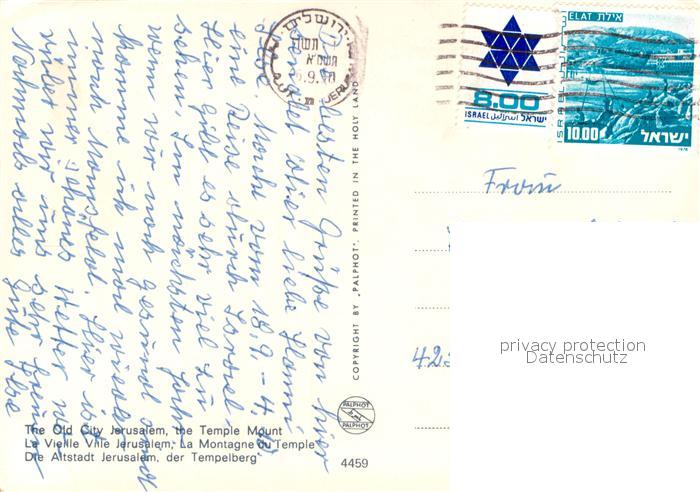 ירושלים
8.00
ISRAEL اسرائيل ישראל
ELAT אילת
ISRAEL
10.00 ישראל
1978
Die besten Grüße von hier
sendet dir liebe Hanni
vom 18.9. - 4.
eine Reise durch Israel.
Hier gibt es sehr viel zu
sehen. Im nächsten Jahr
wenn wir noch gesund sind
komme ich mal wieder
nach Mansfeld. Hier ist
immer schönes Wetter wo
wir uns sehr freuen
Nochmals alles Gute
COPYRIGHT BY „PALPHOT", PRINTED IN THE HOLY LAND
PALPHOT
PALPHOT
The Old City Jerusalem, the Temple Mount
La Vieille Ville Jerusalem, La Montagne du Temple
Die Altstadt Jerusalem, der Tempelberg
4459
Frau
privacy protection
Datenschutz